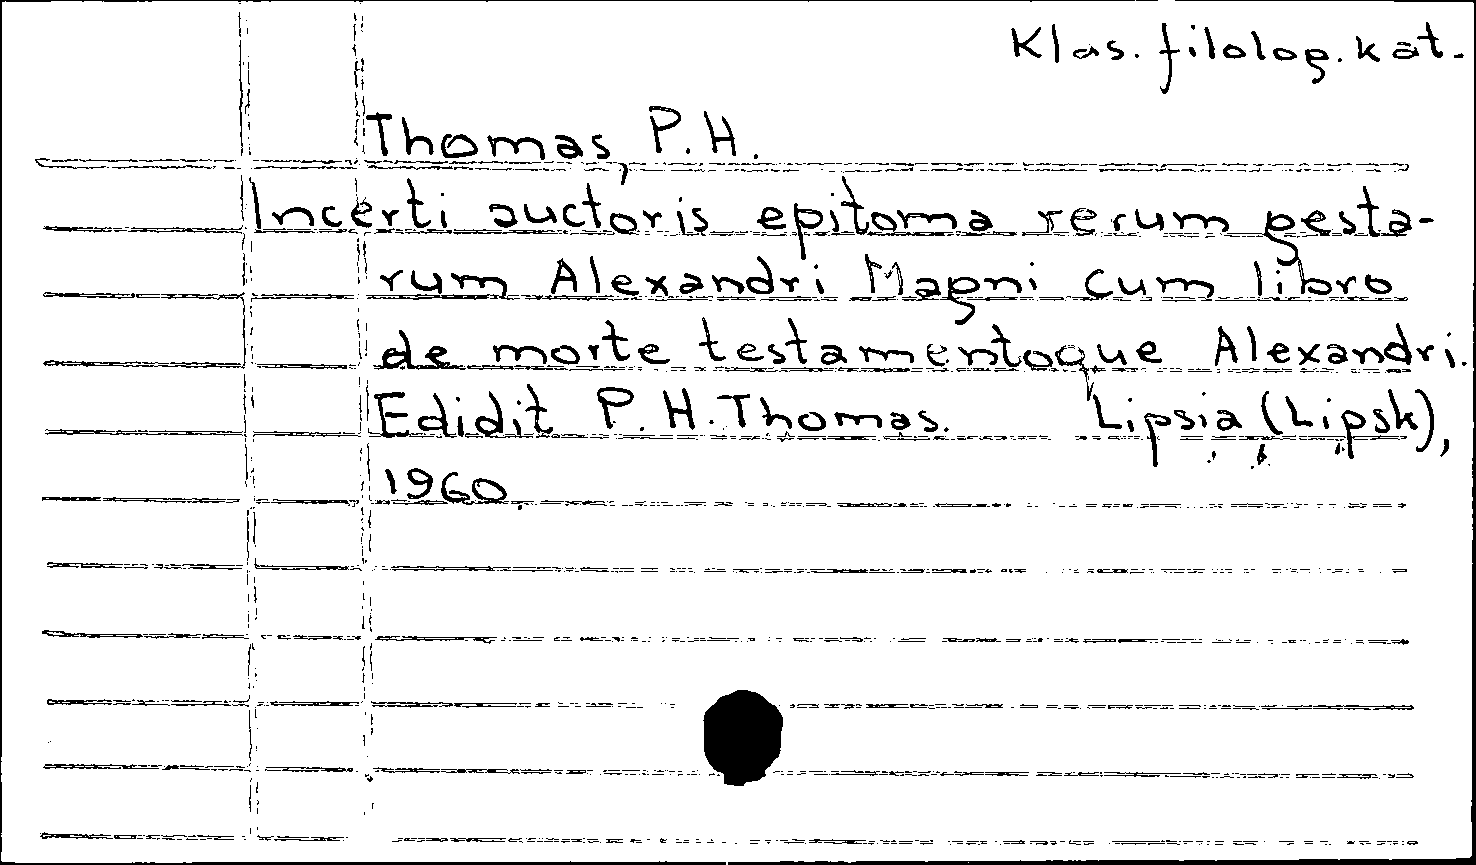 Klas. filolog. kat.
Thomas, P. H.
Incerti auctoris epitoma rerum gesta-
rum Alexandri Magni cum libro
de morte testamentoque Alexandri.
Edidit P. H. Thomas. Lipsia (Lipsk),
1960.